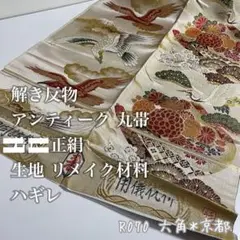 解き反物
アンティーク 丸帯
正絹
生地 リメイク材料
ハギレ
ROTO 六角*京都